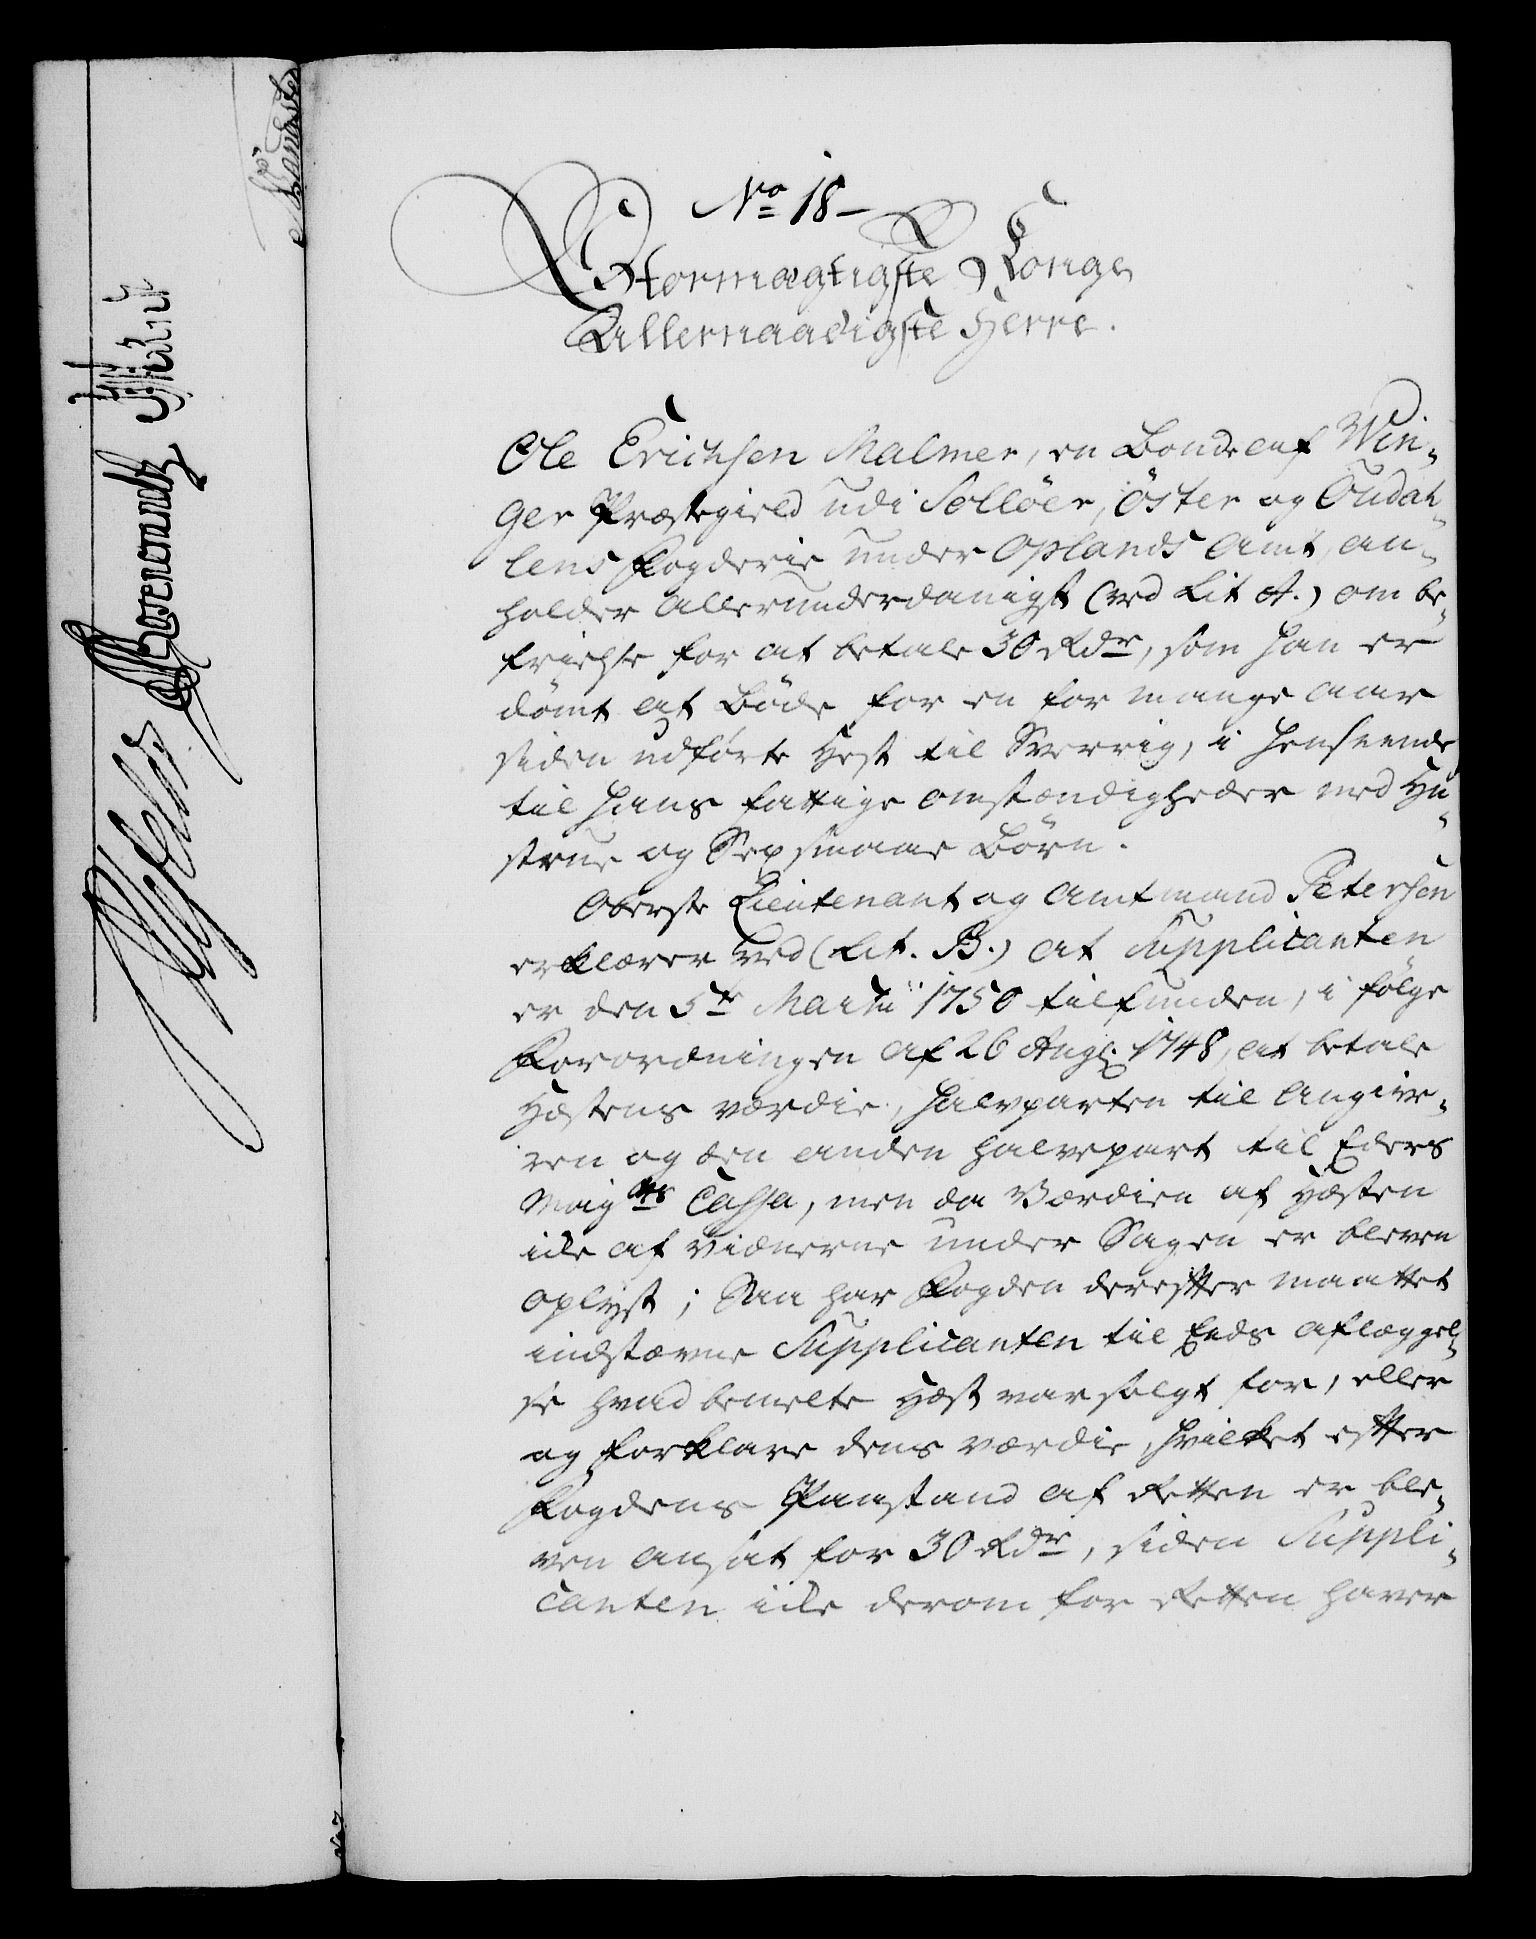 No 18 –
Stormægtigste Konge
Allernaadigste Herre.
Ole Erichsen Malmer, en Bonde af Win-
ger Præstegield udi Solløer, Öster og Oudah-
lens Fogderie under Oplands Amt, an-
holder allerunderdanigst (ved Lit A.) om be-
frielse for at betale 30 Rdr, som han er
dömt at Böde for en for mange aar
siden udförte Hest til Sverrig, i henseende
til hans fattige omstændigheder med Hu-
strue og Sex smaae Börn.
Oberste Lieutenant og Amtmand Petersen
erklærer ved (Lit. B.) at Supplicanten
er den 5te Martii 1750 tilfunden, i følge
Forordningen af 26 Aug. 1748, at betale
Hæstens værdie, halvparten til Angive-
ren og den anden halvepart til Eders
Mayts Cassa, men da Værdien af Hæsten
icke af vidnerne under Sagen er bleven
oplyst; Saa har Fogden derefter maattet
indstævne Supplicanten til Eeds aflæggel-
se hvad bemelte Hæst var solgt for, eller
og forklare dens værdie, hvilket efter
Fogdens Paastand af Retten er ble-
ven ansat for 30 Rdr, siden Suppli-
canten icke derom for Retten haver